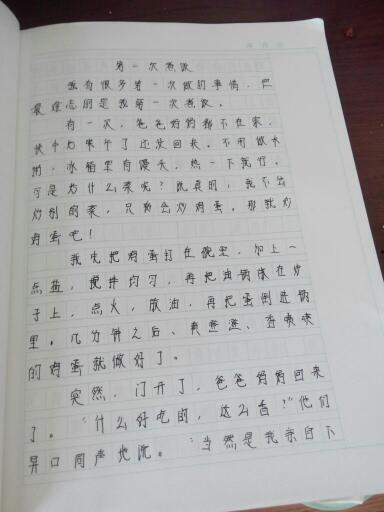 第一次煮饭
我有很多第一次做的事情,但
最难忘的是我第一次煮饭。
有一次,爸爸妈妈都不在家,
快中午了还没回来。不用做水
饭,冰箱里有馒头,热一下就行,
可是炒什么菜呢?说真的,我不会
炒别的菜,只能会炒鸡蛋。那就炒
鸡蛋吧!
我先把鸡蛋打在碗里,加上一
点盐,搅拌均匀,再把油锅放在炉
子上,点火,放油,再把蛋倒进锅
里。几分钟之后、黄澄澄、香喷喷
的鸡蛋就做好了。
突然,门开了,爸爸妈妈回来
了。“什么好吃的,这么香?”他们
异口同声地说。“当然是我亲自下